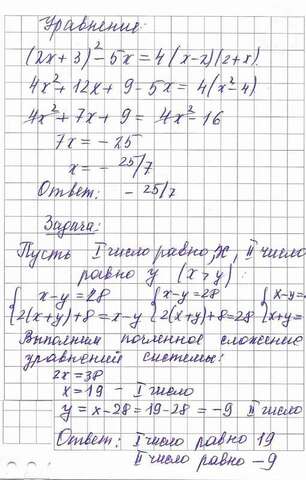 Уравнение:
(2x + 3)² - 5x = 4(x-2)(2+x).
4x² + 12x + 9 - 5x = 4(x² - 4)
4x² + 7x + 9 = 4x² - 16
7x = - 25
x = - 25/7
Ответ: - 25/7
Задача:
Пусть I число равно x, II число
равно y (x > y)
{ x - y = 28 { x - y = 28 { x - y =
{ 2(x+y)+8 = x-y { 2(x+y)+8 = 28 { x+y =
Выполним почленное сложение
уравнений системы:
2x = 38
x = 19 - I число
y = x - 28 = 19 - 28 = -9 II число
Ответ: I число равно 19
II число равно -9